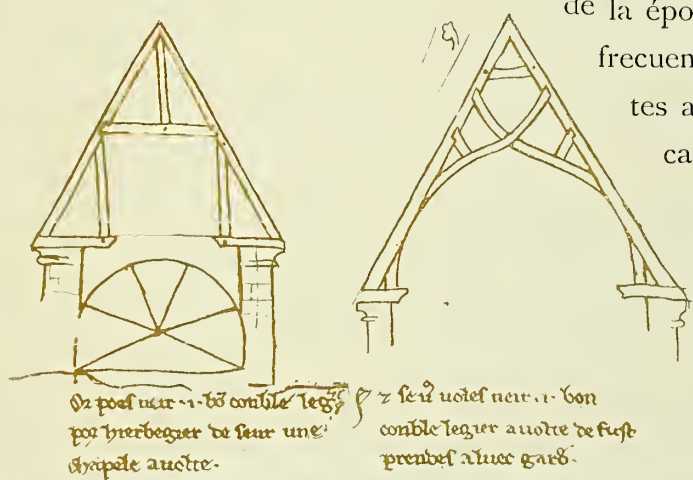 de la épo
frecuen
tes a
ca
Or poes ueir ·i· bõ conble leg
por hierbegier de seur une
chapele auolte·
⁊ seů uoles ueir ·i· bon
conble legier auolte de fust
prendes aluec gard·